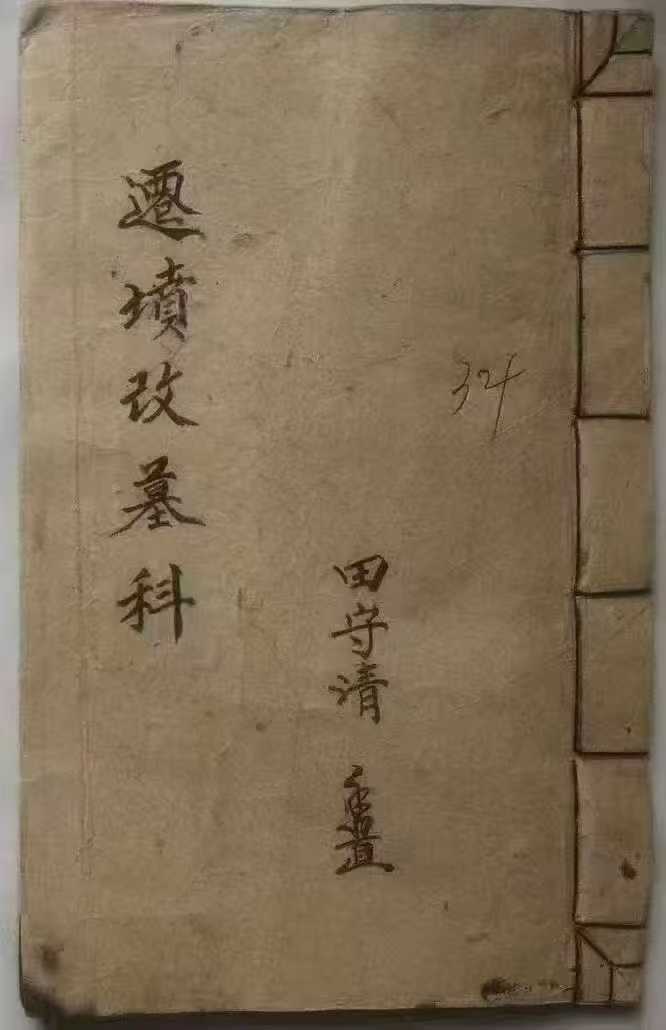 遷墳改墓科
34
田守清 置